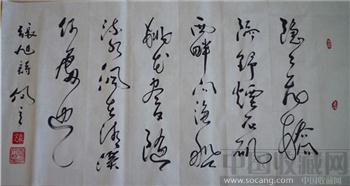 隐隐飞桥
隔野烟石矶
西畔问渔船
桃花尽日随
流水洞在清溪
何处边
张旭诗
中国收藏网
www.socang.com